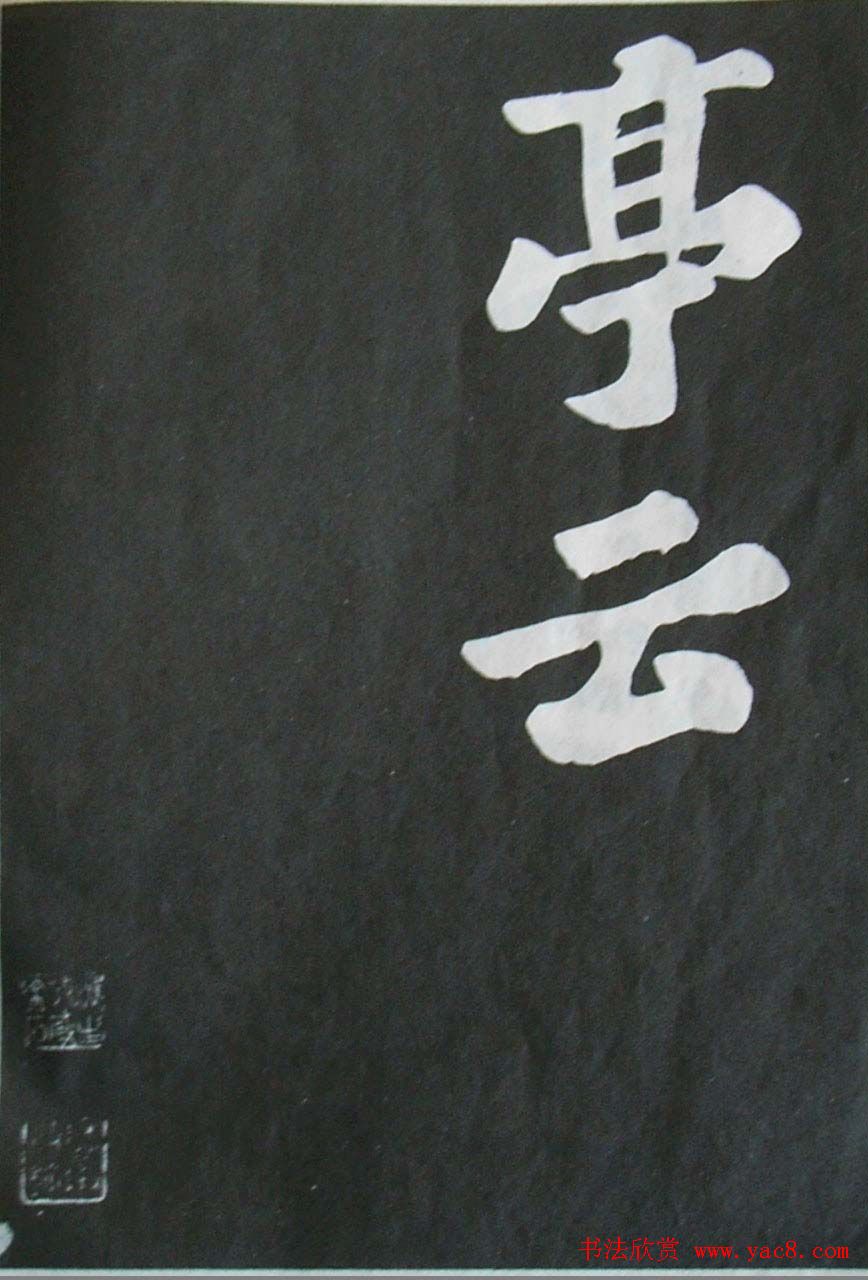 亭云
书法欣赏 www.yac8.com